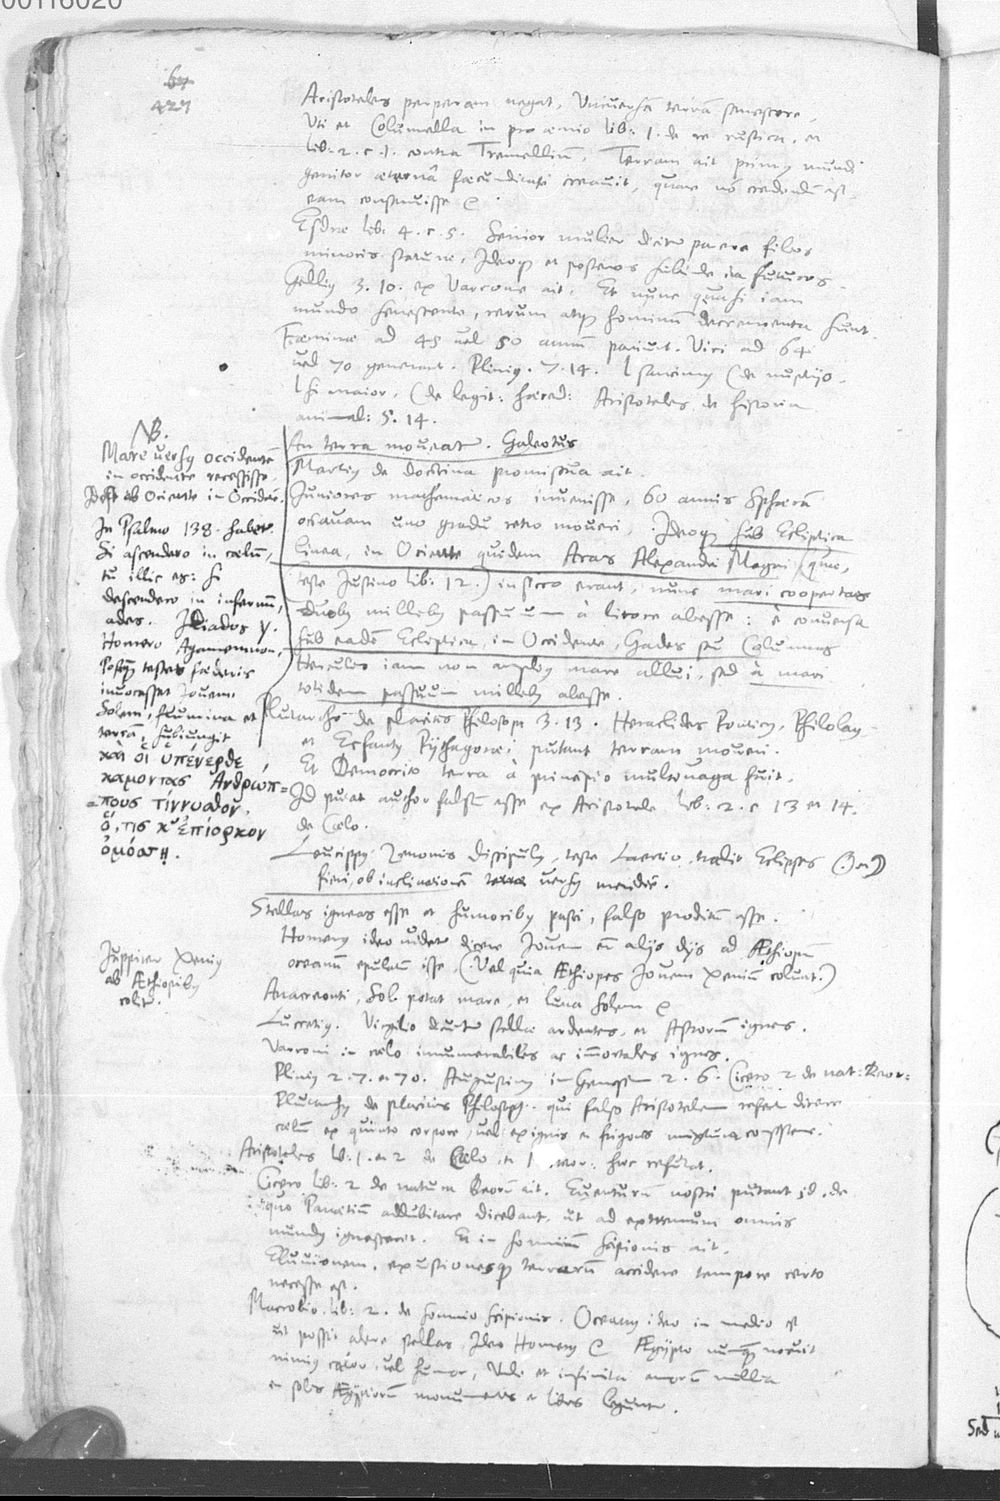 00116020
67
427
Aristoteles perperam negat, Universã terrã senescere,
Uti et Columella in proœmio lib: 1. de re rustica, et
lib. 2. c. 1. contra Tremelliũ. Terram ait primꝰ mundi
genitor æternâ fæcunditate creavit, quare nõ credendũ est
eam consenuisse
Esdræ lib. 4. c. 5. Senior mulier dicitur parere filios
minoris staturæ, Ideoq et posteros subinde ita futuros.
Gelliꝰ 3. 10. ex Varrone ait. Et nunc quasi iam
mundo senescente, rerum atq hominum decrementa sunt.
Fæminæ ad 45 vel 50 annũ pariunt. Viri ad 64
vel 70 generant. Pliniꝰ. 7. 14. l sancimꝰ (de nuptijs.
l si maior, (de legit: hæred: Aristoteles de historia
animal: 5. 14.
NB.
Mare versꝰ occidentẽ
in occidente recessisse,
Idest ab Oriente in Occidẽ.
In Psalmo 138. habetur
Si ascendero in cœlũ,
tu illic es: si
descendero in infernũ,
ades. Iliados γ.
Homero Agamemnon,
postq testes fœderis
invocasset Iovem,
Solem, flumina et
terrã, subiungit
καὶ οἱ ὑπένερθε
καμοντας Ἀνθρώπ=
=πους τίννυσθον.
ὅ,τις κ' ἐπίορκον
ὀμόσῃ.
An terra moveatur. Galeotus
Martiꝰ de doctrina promiscua ait.
Juniores mathematicos invenisse, 60 annis Sphærã
octavam uno gradu retro moveri, Ideoq sub Ecliptica
linea, in Oriente quidem Aras Alexandri Magni (quæ,
teste Justino lib: 12.) in sicco erant, nunc mari coopertas
duobꝰ millibꝰ passuum à litore abesse: è conversa
sub eadẽ Ecliptica, in Occidente, Gades seu Columnas
Herculis iam non amplius mare allui, sed à mari
totidem passuum millibꝰ abesse.
Plutarchꝰ de placitis Philosoph 3. 13. Heraclides Ponticꝰ, Philolaꝰ
et Ecfantꝰ Pythagorei putant terram moveri.
Et Democrito terra à principio multivaga fuit.
Id putat author falsũ esse ex Aristotele lib: 2. c 13 et 14.
de Cœlo.
Leucippꝰ Zenonis discipulꝰ, teste Laertio, tradit Eclipses ☉ et ☽
fieri, ob inclinationẽ terræ versꝰ meridiẽ.
Stellas igneas esse et humoribꝰ pasci, falso proditũ esse.
Homerꝰ ideo videtur dicere Jovem cũ alijs dijs ad Æthiopũ
oceanũ epulatũ isse. (Vel quia Æthiopes Jovem Xeniũ colunt.)
Juppiter Xeniꝰ
ab Æthiopibꝰ
colitur.
Anacreonti, Sol potat mare, et luna Solem
Lucretiꝰ. Virgilio dicuntur stellæ ardentes, et Astrorũ ignes.
Varroni in cœlo innumerabiles ac immortales ignes.
Pliniꝰ 2. 7. et 70. Augustinꝰ in Genesem 2. 6. Cicero 2 de nat: Deor:
Plutarchꝰ de placitis Philosoph. qui falso Aristotelem refert dicere
cœlũ ex quinto corpore, vel ex ignis et frigoris mixtura consistere.
Aristoteles lib. 1. et 2 de Cœlo, et 1. meteor: hæc refutat.
Cicero lib: 2 de natura Deorũ ait. Euenturũ nostri putant id, de
quo Panætiũ addubitare dicebant, ut ad extremum omnis
mundꝰ ignesceret. Et in somnium Scipionis ait.
Eluuionem, exustionesq terrarũ accidere tempore certo
necesse est.
Macrobio lib: 2. de somnio Scipionis. Oceanꝰ ideo in medio est
ut possit alere stellas. Ideo Homerꝰ Ægypto nunq nocuit
nimiꝰ calor, vel humor, Unde et infinita annorũ millia
in solis Ægyptiorũ monumentis et libris leguntur.